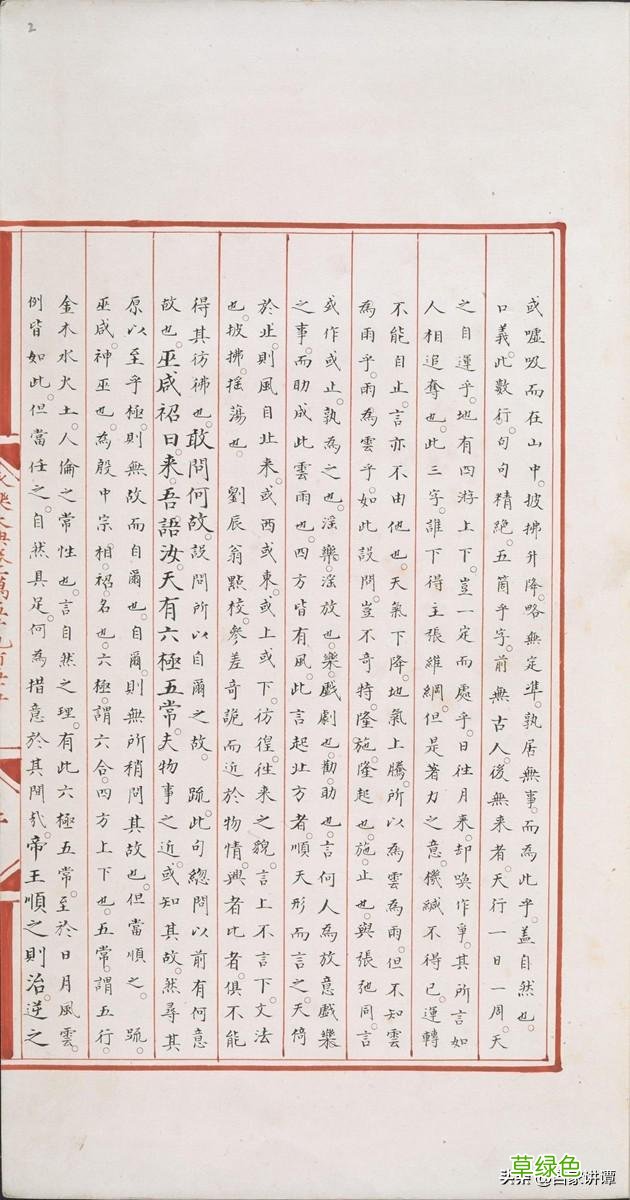 2
或噓吸而在山中。披拂升降。略無定準。孰居無事。而為此乎。蓋自然也。
口義。此數行。句句精絕。五箇乎字。前無古人。後無来者。天行一日一周。天
之自運乎。地有四游上下。豈一定而處乎。日往月来。却喚作爭。其所言如
人相追奪也。此三字。誰下得。主張維綱。但是著力之意。機緘不得已。運轉
不能自止。言亦不由他也。天氣下降。地氣上騰。所以為雲為雨。但不知雲
為雨乎。雨為雲乎。如此設問。豈不奇特。隆施。隆起也。施。止也。與張弛同。言
或作或止。孰為之也。淫樂。淫放也。樂。戲劇也。勸。助也。言何人為放意戲樂
之事。而助成此雲雨也。四方皆有風。此言起北方者。順天形而言之。天倚
於北。則風自北来。或西或東。或上或下。彷徨。往来之貌。言上不言下。文法
也。披拂。搖蕩也。 劉辰翁點校。參差奇詭而近於物情。興者比者。俱不能
得其彷彿也。敢問何故。設問所以自爾之故。 䟽。此句總問以前有何意
故也。巫咸祒曰。来。吾語汝。天有六極五常。夫物事之近。或知其故。然尋其
原以至乎極。則無故而自爾也。自爾。則無所稍問其故也。但當順之。 䟽。
巫咸。神巫也。為殷中宗相。祒。名也。六極。謂六合。四方上下也。五常。謂五行。
金木水火土。人倫之常性也。言自然之理。有此六極五常。至於日月風雲。
例皆如此。但當任之。自然具足。何為措意於其間哉。帝王順之則治。逆之
草绿色
头条@百家讲谭